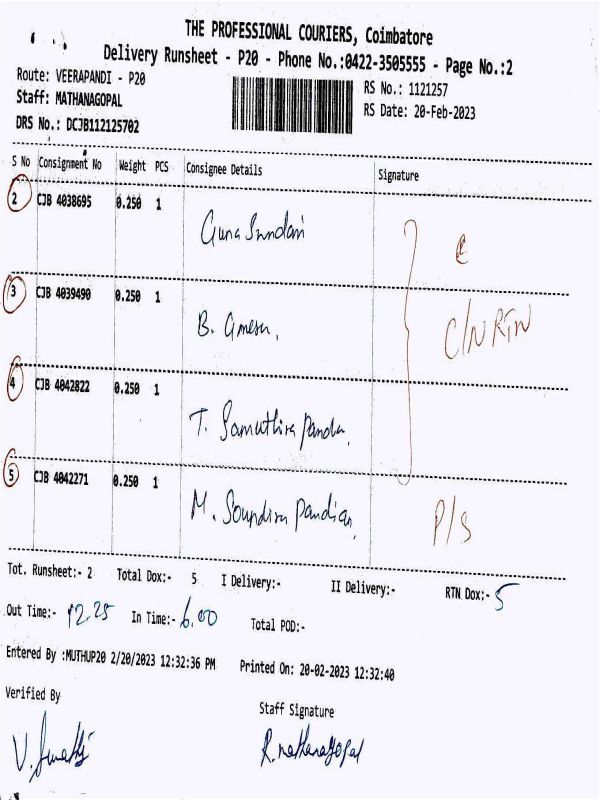 THE PROFESSIONAL COURIERS, Coimbatore
Delivery Runsheet - P20 - Phone No.:0422-3505555 - Page No.:2
Route: VEERAPANDI - P20
RS No.: 1121257
Staff: MATHANAGOPAL
RS Date: 20-Feb-2023
DRS No.: DCJB112125702
S No Consignment No Weight PCS Consignee Details Signature
2 CJB 4038695 0.250 1 Guna Sundari
3 CJB 4039490 0.250 1 B. Ganesn.
C/N RTN
4 CJB 4042822 0.250 1 T. Samuthira Pandu.
5 CJB 4042271 0.250 1 M. Soundira Pandian.
P/S
Tot. Runsheet:- 2 Total Dox:- 5 I Delivery:- II Delivery:- RTN Dox:- 5
Out Time:- 12.25 In Time:- 6.00 Total POD:-
Entered By :MUTHUP20 2/20/2023 12:32:36 PM Printed On: 20-02-2023 12:32:40
Verified By
Staff Signature
R. Mathanagopal